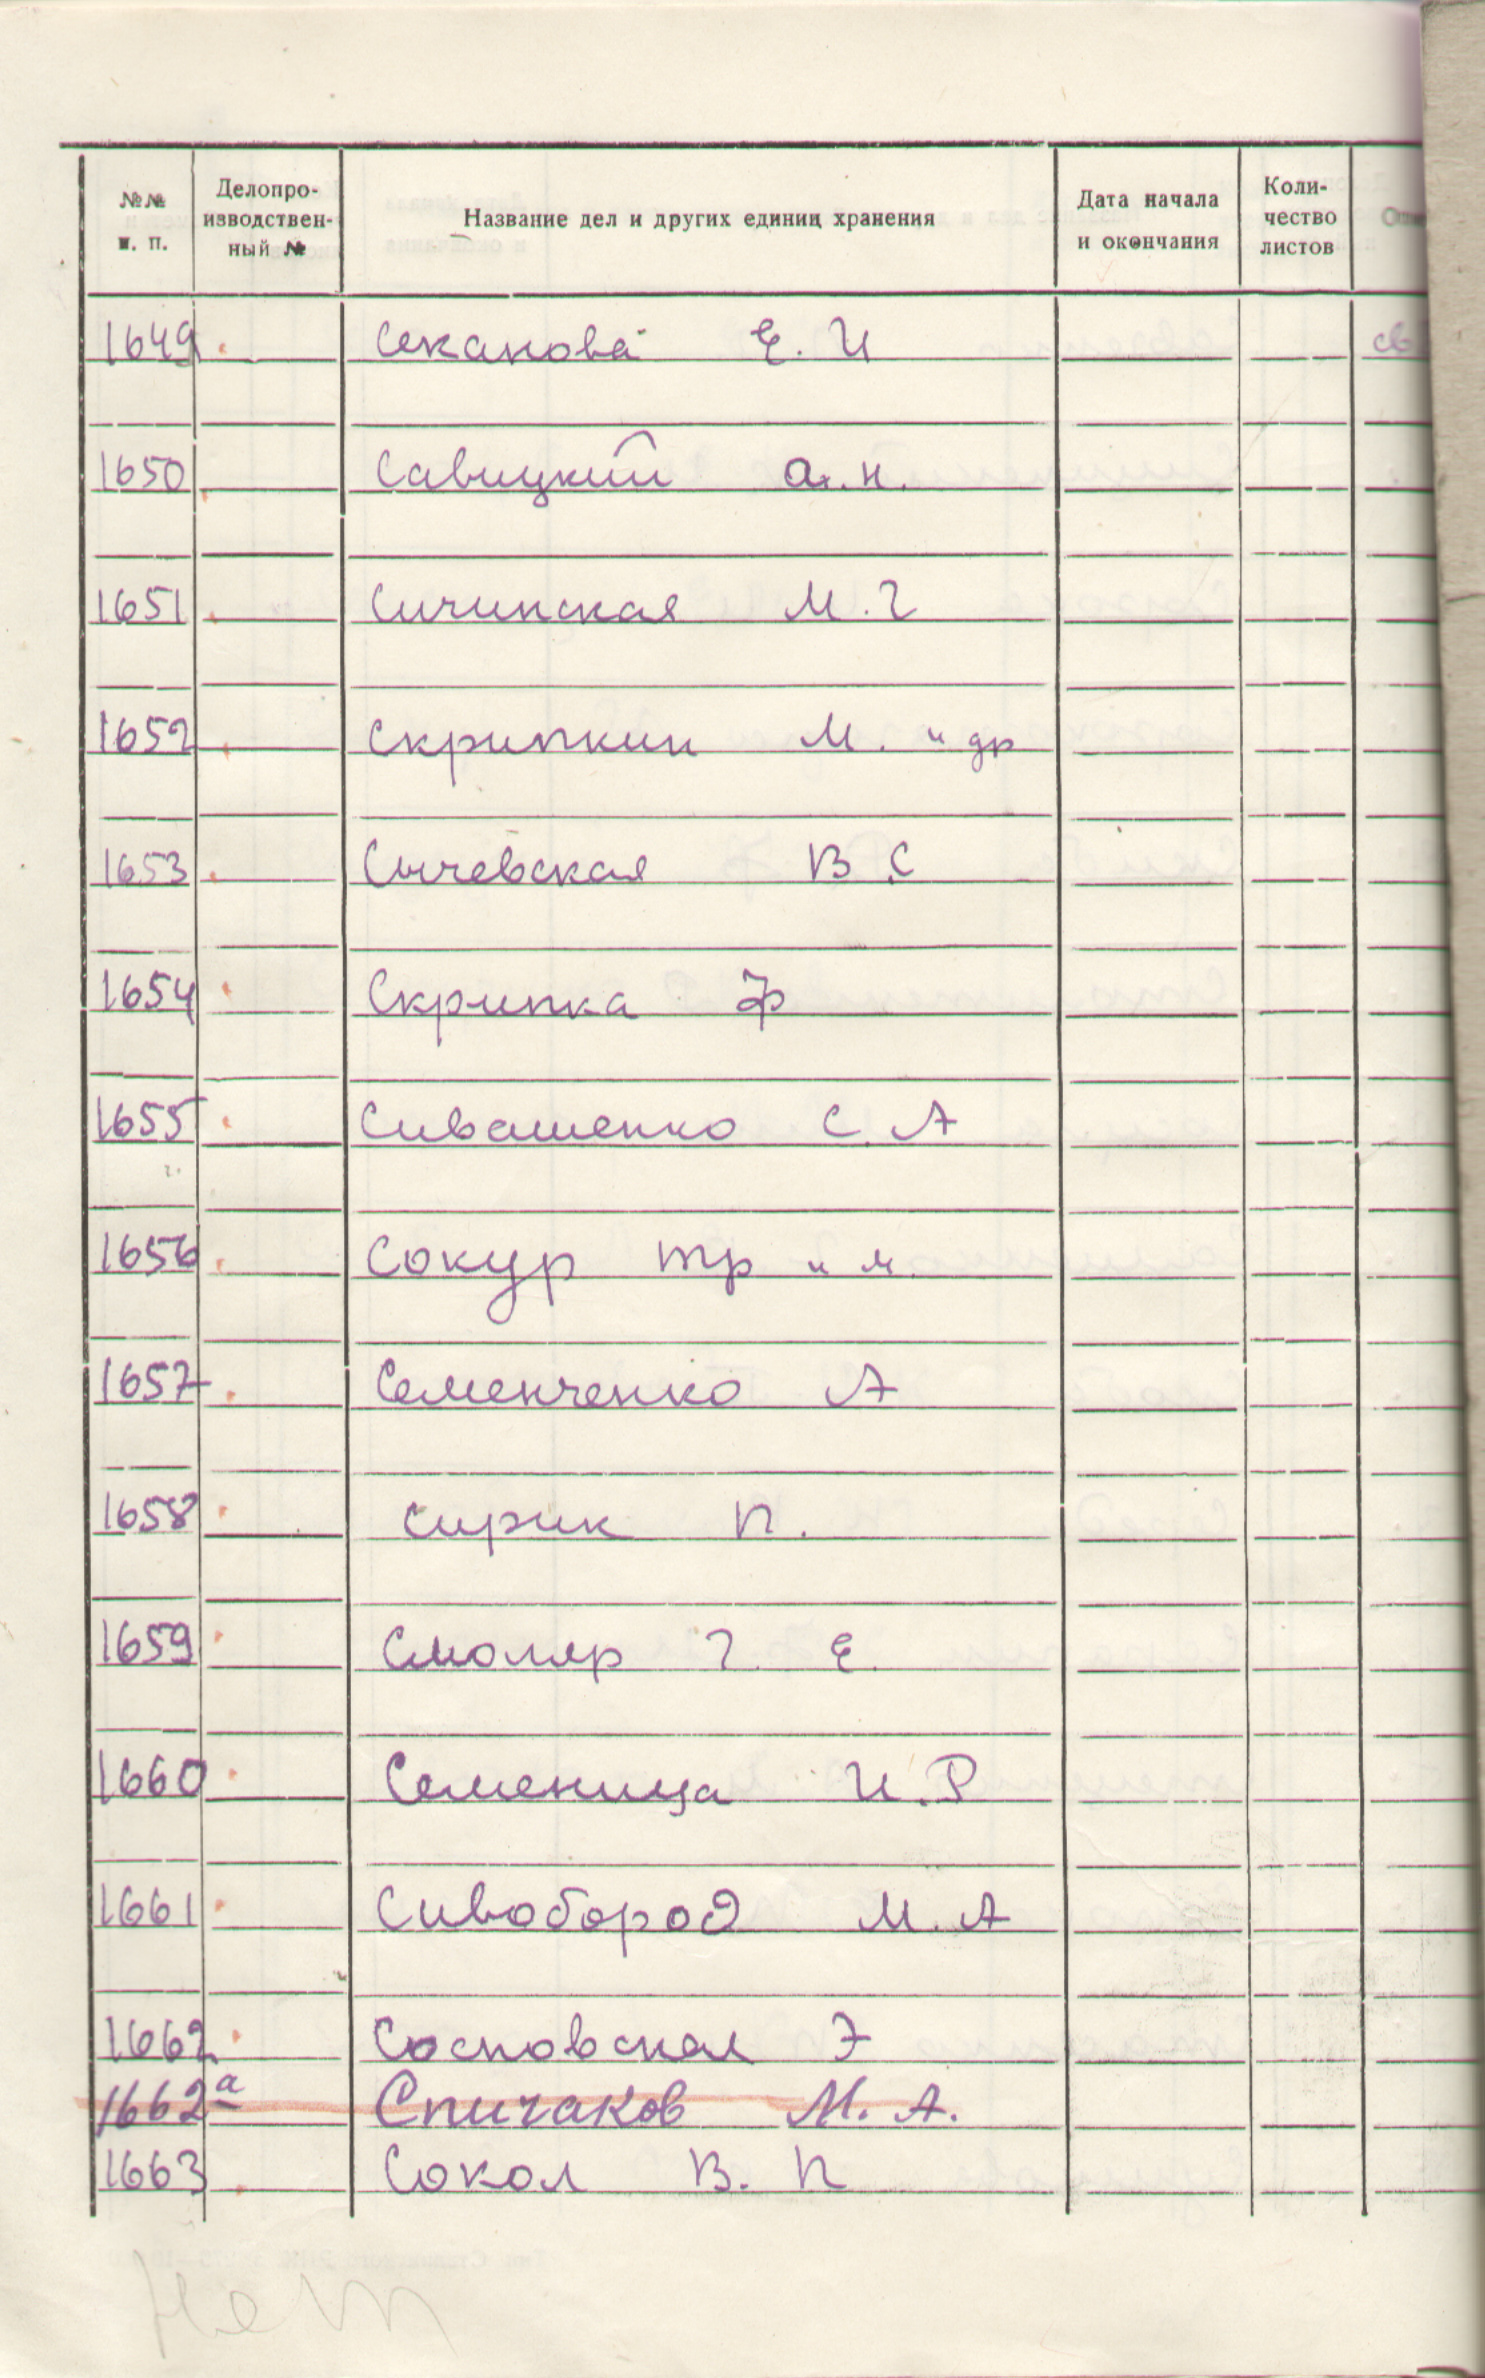 №№ п. п. Делопроизводственный № Название дел и других единиц хранения Дата начала и окончания Количество листов
1649 Секанова Е. И св
1650 Савицкий А. Н.
1651 Сичинская М. Г
1652 Скрипкин М. и др
1653 Сычевская В. С
1654 Скрипка Ф
1655 Сивашенко С. А
1656 Сокур Тр и М.
1657 Семенченко А
1658 Сирик П.
1659 Смоляр Г. Е.
1660 Семеница И. Р
1661 Сивобород М. А
1662 Сосновская Э
1662а Спичаков М. А.
1663 Сокол В. П
Нет